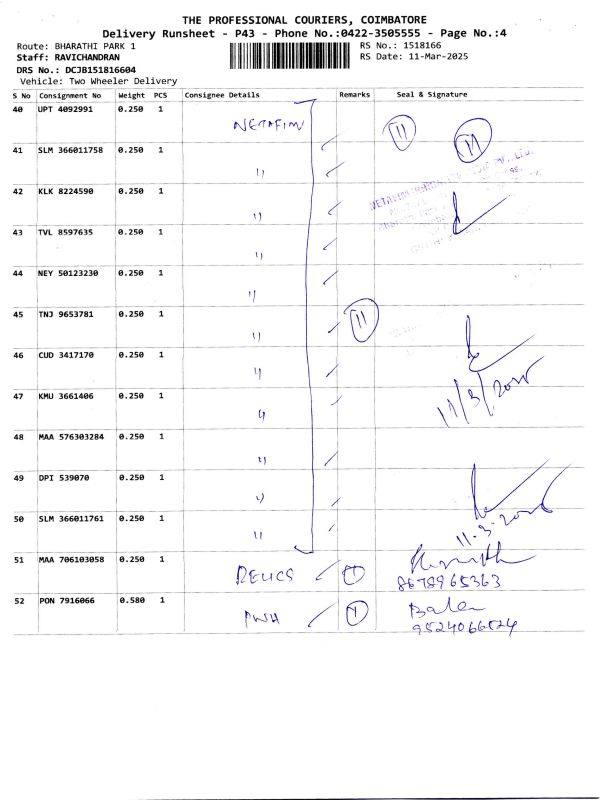 THE PROFESSIONAL COURIERS, COIMBATORE
Delivery Runsheet - P43 - Phone No.:0422-3505555 - Page No.:4
Route: BHARATHI PARK 1 RS No.: 1518166
Staff: RAVICHANDRAN RS Date: 11-Mar-2025
DRS No.: DCJB151816604
Vehicle: Two Wheeler Delivery
S No Consignment No Weight PCS Consignee Details Remarks Seal & Signature
40 UPT 4092991 0.250 1
NETAFIM 11 11
41 SLM 366011758 0.250 1
"
42 KLK 8224590 0.250 1
"
43 TVL 8597635 0.250 1
"
44 NEY 50123230 0.250 1
"
45 TNJ 9653781 0.250 1
" 11
46 CUD 3417170 0.250 1
"
11/3/2025
47 KMU 3661406 0.250 1
"
48 MAA 576303284 0.250 1
"
49 DPI 539070 0.250 1
"
50 SLM 366011761 0.250 1
" 11.3.2025
51 MAA 706103058 0.250 1
RELICS 1 8678965363
52 PON 7916066 0.580 1
PWH 1 Balen